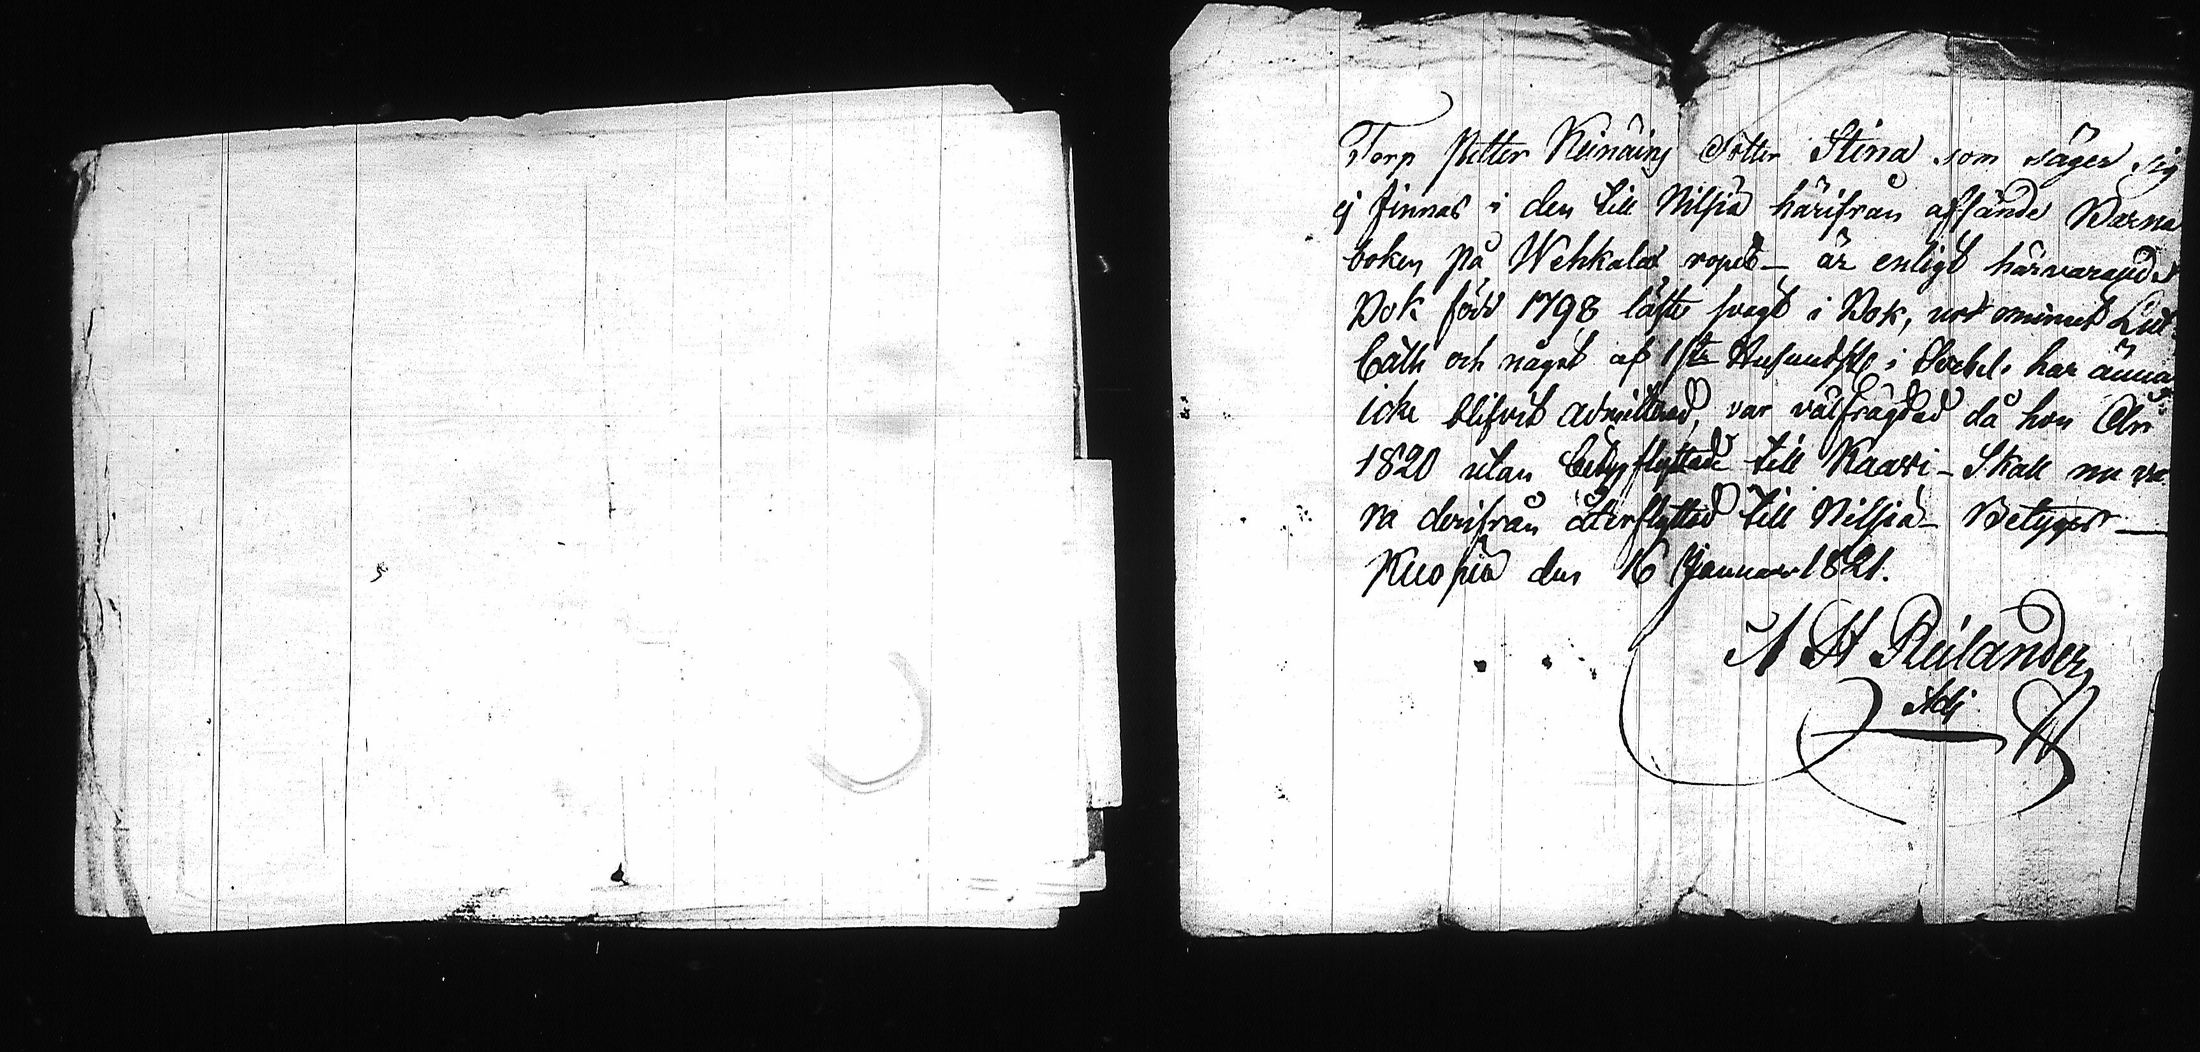 Torp Petter Keinäins Dotter Stina som säger sig
ej finnas i den till Nilsiä härifrån afsände Barna
boken på Wehkalax ropet – är enligt härvarande
Bok född 1798 läste svagt i Bok, utommint Lut:
Cath och något af 1sta i har ännu
icke blifvit admitterad, var välfrägdad då hon År
1820 utan betyg flyttade till Kaavi – Skall nu va
ra derifrån återflyttad till Nilsiä – Betygar –
Kuopio den 16 Januari 1821.
A H Reilander
Adj